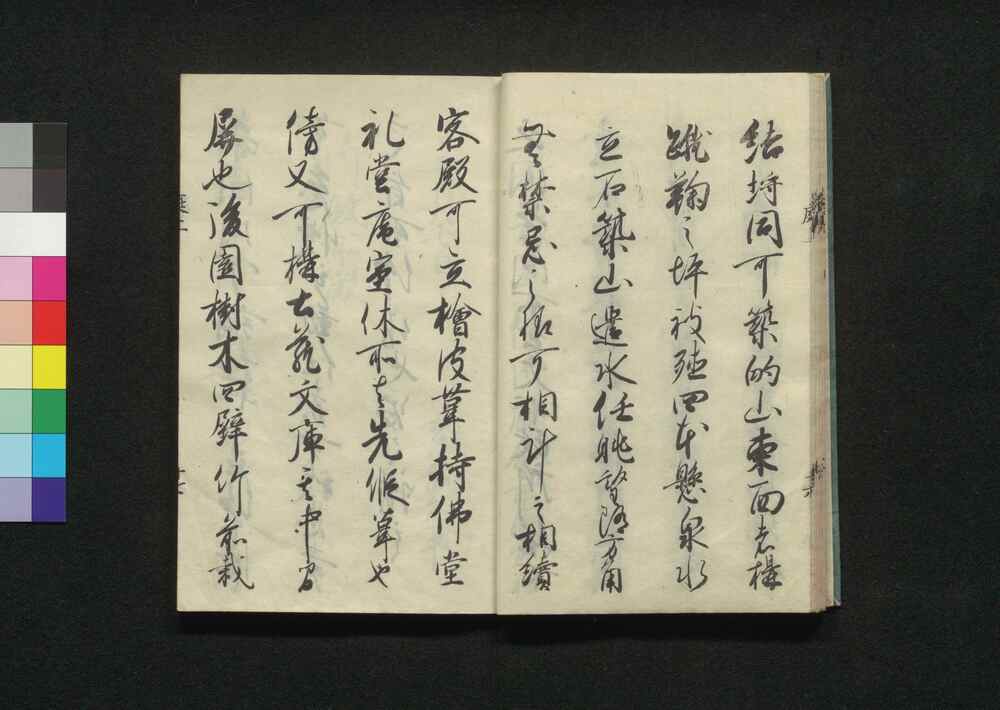 結埒同可築的山東西者構
蹴鞠之坪被殖四本懸泉水
立石築山遣水任眺望随方角
無禁忌之様可相計之相續
客殿可立檜皮葺持佛堂
礼堂庵室休所者先假葺也
傍又可構土蔵文庫其中間
屏也後園樹木四壁竹前栽